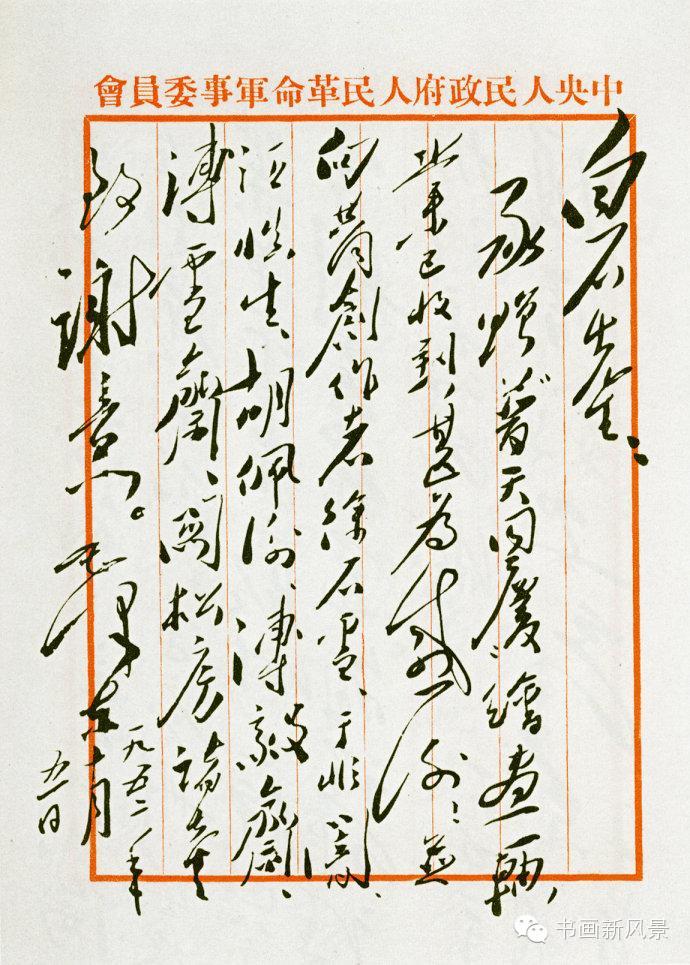 中央人民政府人民革命軍事委員會
白石先生：
承贈普天同慶繪畫一軸，
業已收到，甚為感謝！並
向共同創作者徐石雪、于非闇、
汪慎生、胡佩衡、溥毅齋、
溥雪齋、關松房諸先生
致謝意。毛澤東
一九五二年
十月
五日
书画新风景